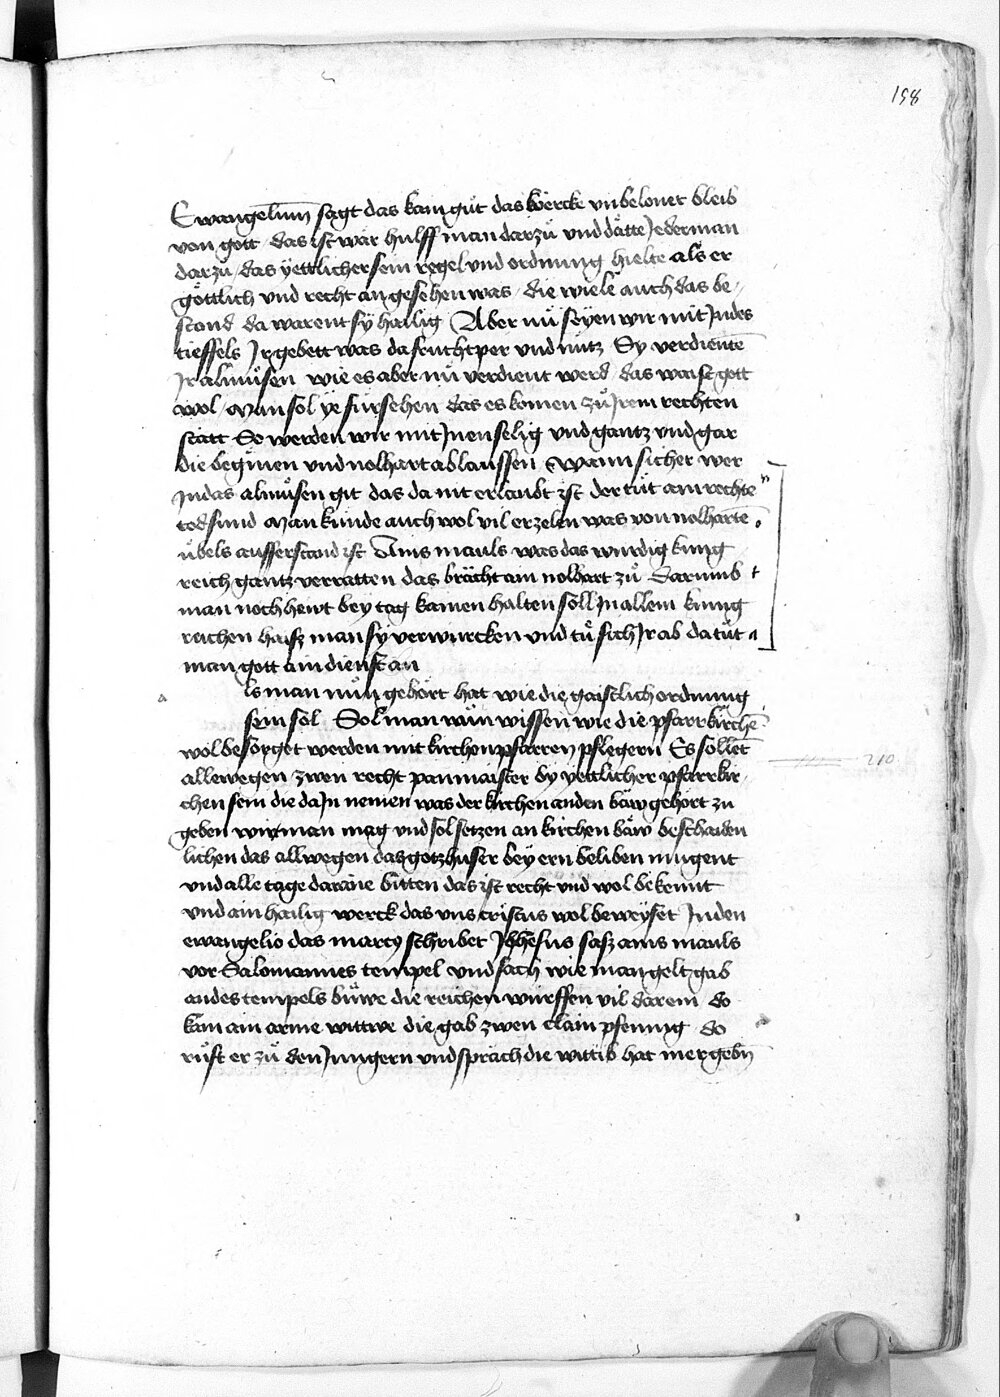 198
Ewangelium̄ sagt das kain gůt das wercke vnbelonet bleib
von gott / das ist war hulff man darzů vnd dätte Jederman
darzu / das ÿettlicher sein regel vnd ordnung hielte als er
göttlich vnd recht angesehen was / die wiele auch das be-
stond da warent sÿ hailig Aber nů seyen wir mit Judes
tieffels Ir gebett was da fruchtper vnd nutz Sy verdientē
Ir almůsen wie es aber nů verdient werd / das waist gott
wol / Man sol ÿe fürsehen das es komen zů Jrem rechten
statt So werden wir mit Jnen selig vnd gantz vnd gar
die beginen vnd nolhart ablaussen Wann sicher wer
Jn das almůsen git das da nit erlaubt ist der tůt ain rechte
todsund Man kunde auch wol vil erzelen was von nolhartē
übels aufferstand ist Ains mauls was das wirdig kung
reich gantz verratten das brächt ain nolhart zů Darumb
man noch heut bey tag kainen halten soll Jn allem kung
reichen haisz man sy verwurcken vnd tů sich Ir ab da tůt
man gott ain dienst an
ls man nůn gehört hat wie die gaistlich ordnung
sein sol Sol man nůn wissen wie die pfarrkirchē
wol besorget werden mit kirchen pfarren pflegern Es sollēt
allewegen zwen recht panmaister by yettlicher pfarrkir-
chen sein die da Jn nemen was der kirchen an den bäw gehört zu
geben wirt man mag vnd sol setzen an kirchen bäw beschaiden
lichen das allwegen das gotzhuser bey ern beliben mugent
vnd alle tage darane bitten das ist recht vnd wol bekennt
vnd ain hailig werck das vns cristus wol beweyset Jn den
ewangelio das marcy schribet Jhesus sasz ains mauls
vor Salomannes tempel vnd sach wie man gelt gab
an des tempels büwe die reichen wurffen vil darein do
kam ain arme wittwe die gab zwen clain pfennig do
růft er zů den Jungern vnd sprach die wittib hat mer gebn̄
210